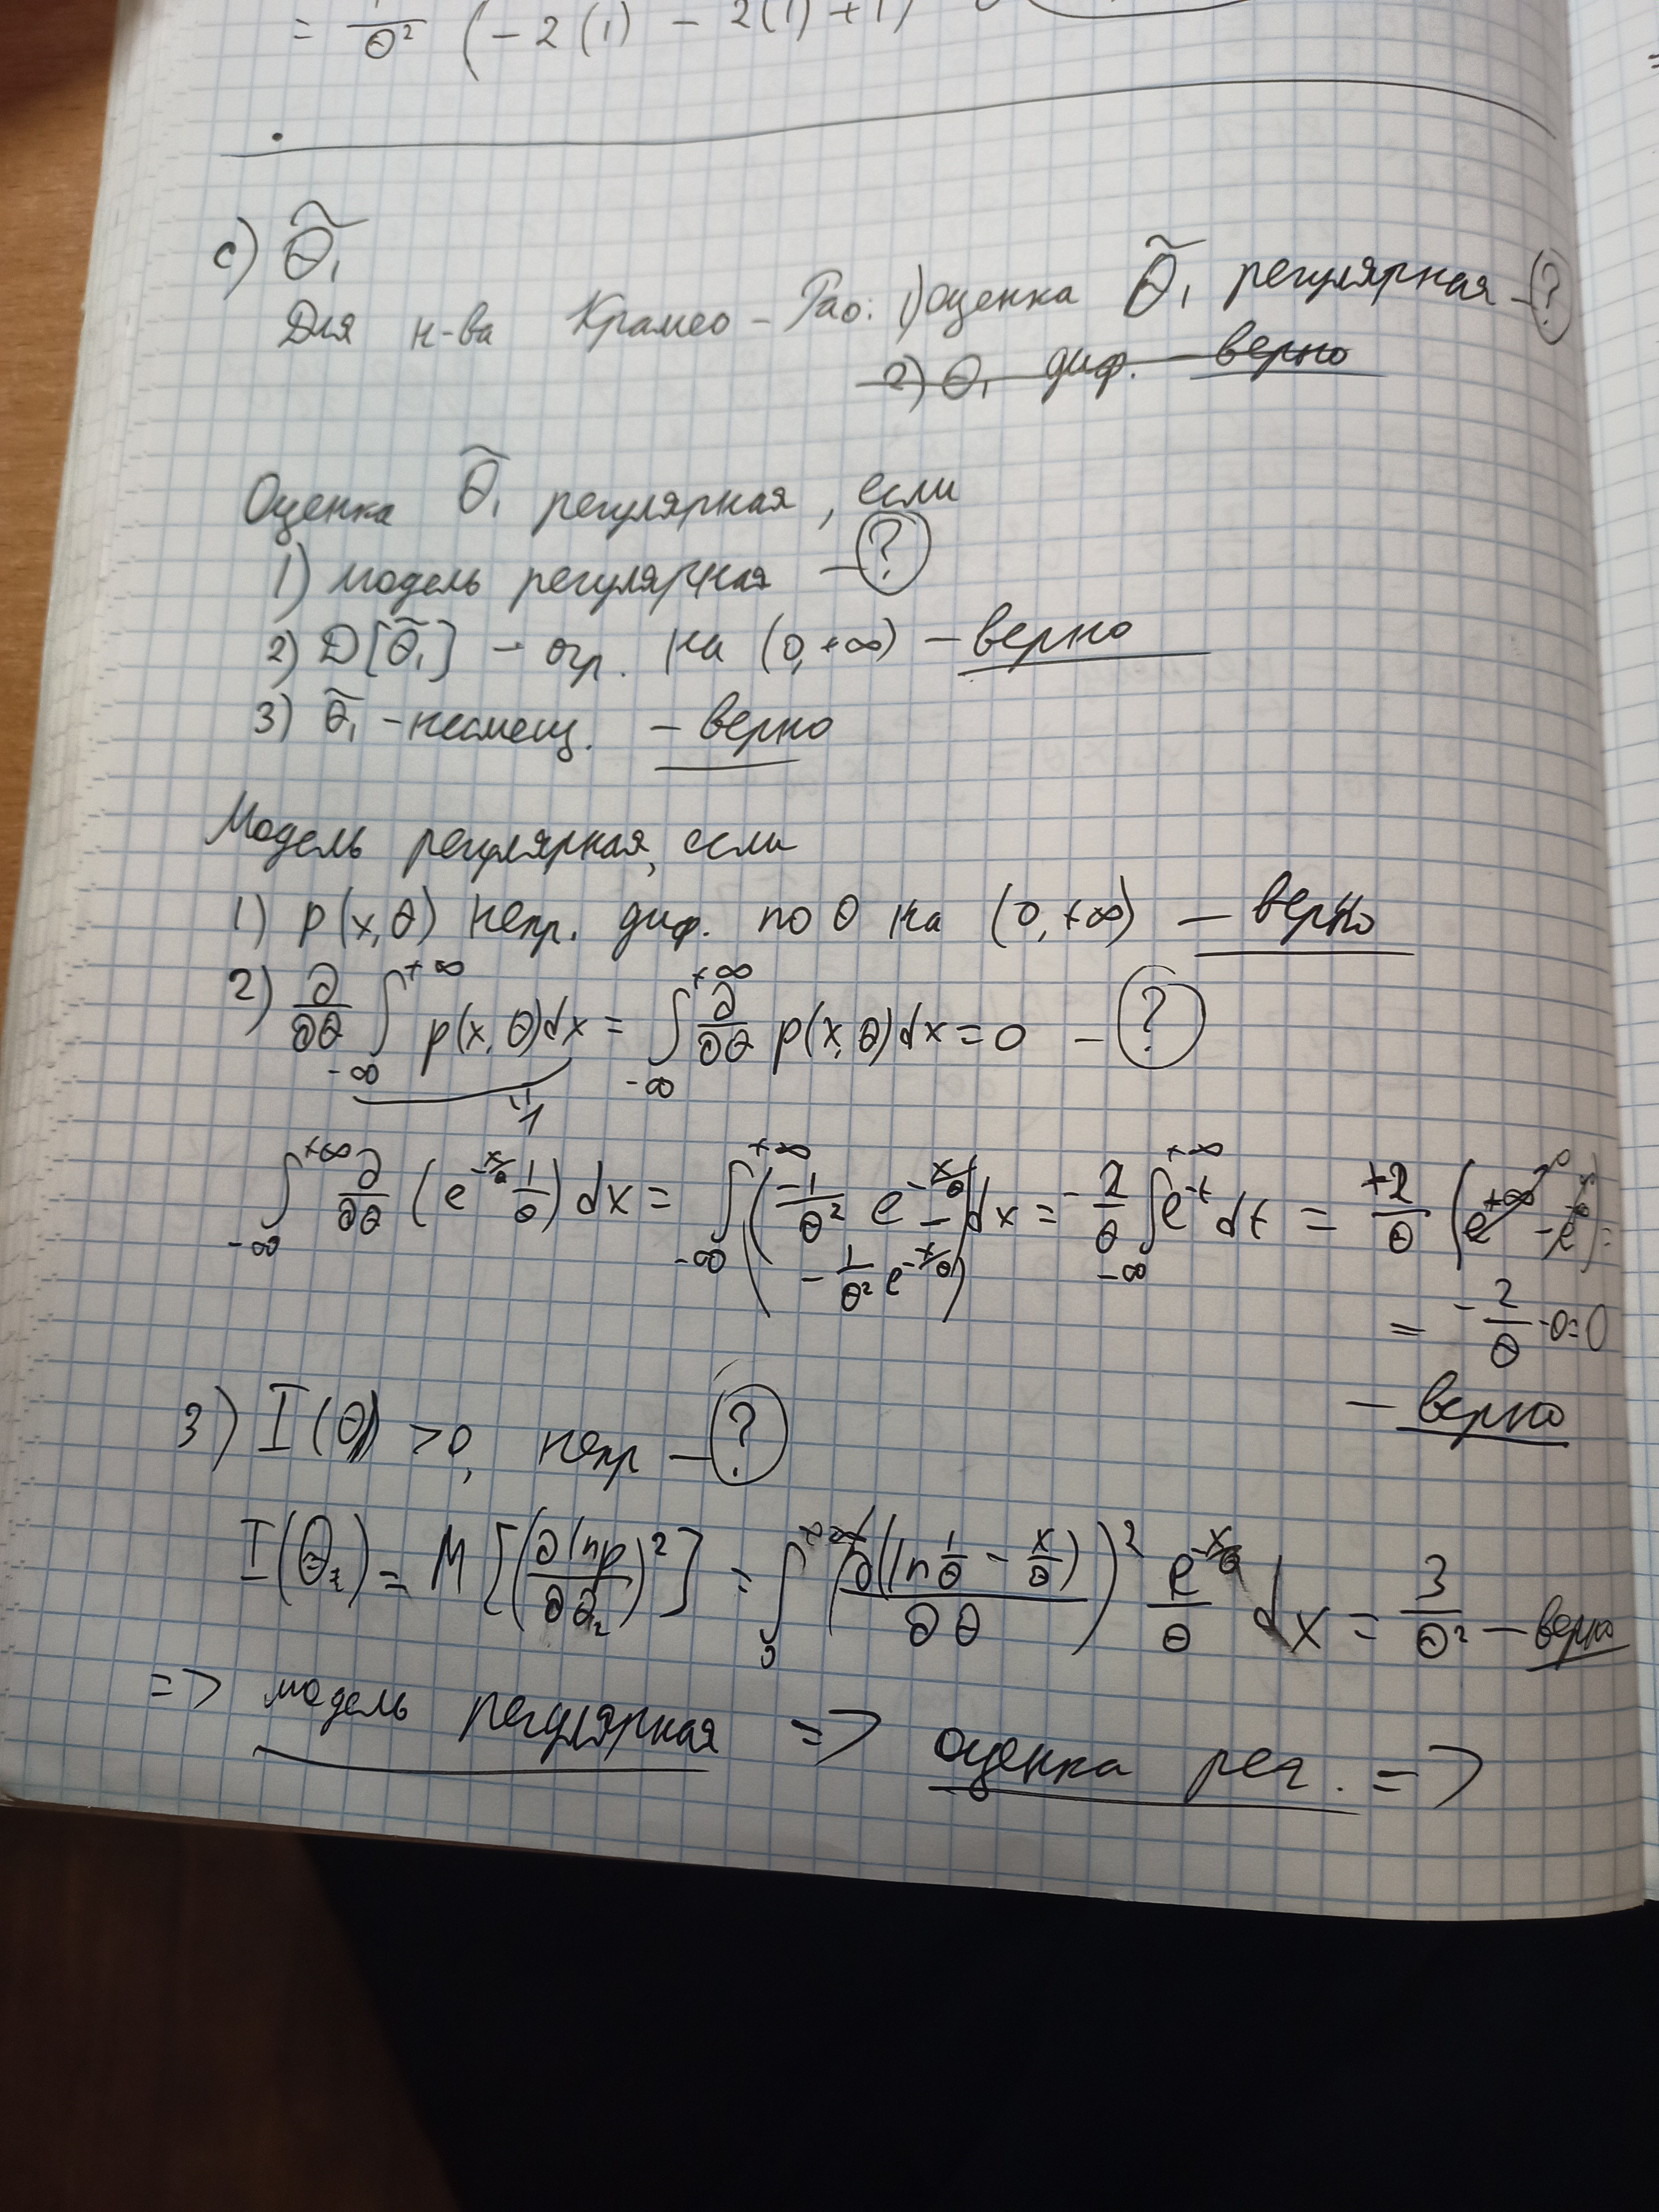 = 1/θ² (-2(1) - 2(1)+1)
c) θ̃₁
Для н-ва Крамео-Рао: 1) оценка θ̃₁ регулярная - ?
2) θ₁ диф. - верно
Оценка θ̃₁ регулярная, если
1) модель регулярная - ?
2) D[θ̃₁] - огр. на (0,+∞) - верно
3) θ̃₁ - несмещ. - верно
Модель регулярная, если
1) p(x,θ) непр. диф. по θ на (0,+∞) - верно
2) ∂/∂θ ∫_{-∞}^{+∞} p(x,θ)dx = ∫_{-∞}^{+∞} ∂/∂θ p(x,θ)dx = 0 - ?
1
∫_{-∞}^{+∞} ∂/∂θ (e^{-x/θ} 1/θ) dx = ∫_{-∞}^{+∞} (-1/θ² e^{-x/θ} - 1/θ² e^{-x/θ}) dx = -2/θ ∫_{-∞}^{+∞} e^{-t} dt = +2/θ (e^{+∞} - e) =
= -2/θ · 0 = 0
- верно
3) I(θ) > 0, непр - ?
I(θ₂) = M[(∂ln p/∂θ₂)²] = ∫ (∂(ln 1/θ - x/θ)/∂θ)² e^{-x/θ}/θ dx = 3/θ² - верно
=> модель регулярная => оценка рег. =>